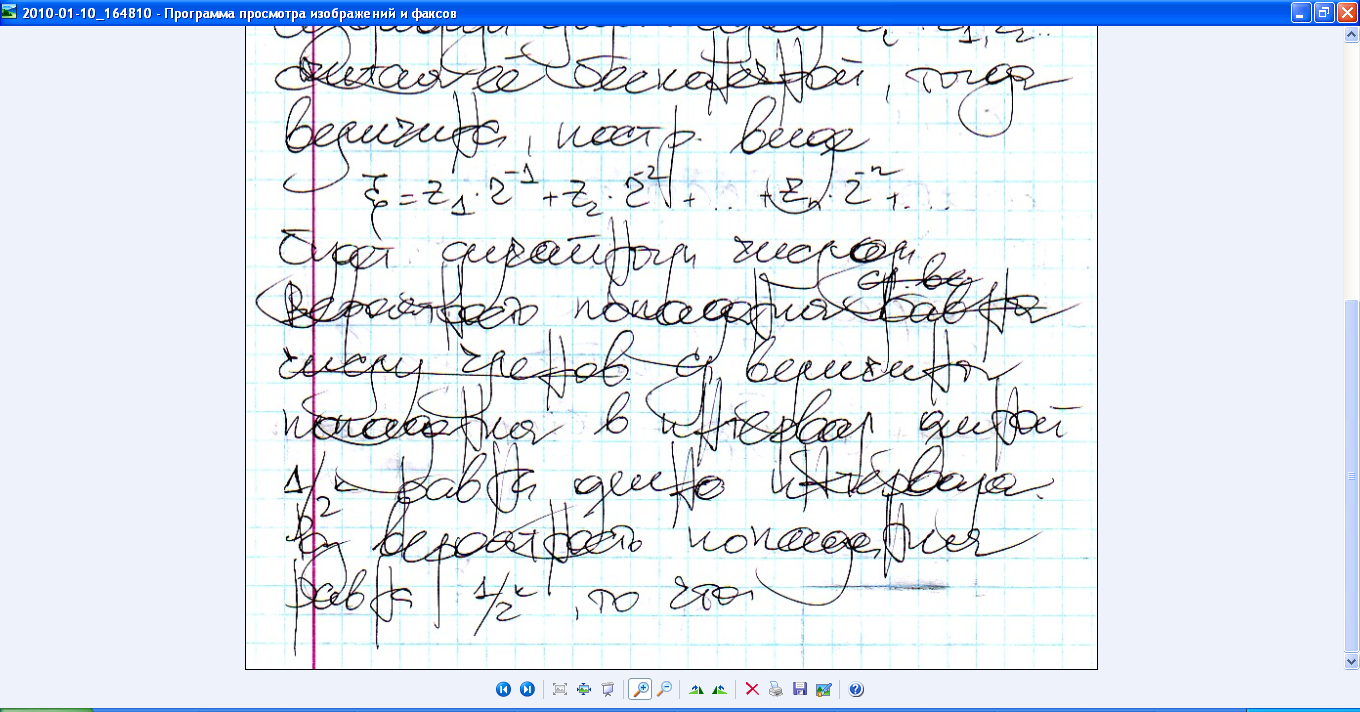 2010-01-10_164810 - Программа просмотра изображений и факсов
z₁, z₂...
считать её бесконечной, тогда
величина, постр. виде
ξ = z₁·2⁻¹ + z₂·2⁻² + ... + zₙ·2⁻ⁿ + ...
будет случайным числом
сл. ве
Вероятность попадания равна
числу членов сл величины
попадания в интервал длиной
1/2ᵏ равна длине интервала.
вероятность попадания
равна 1/2ᵏ, то что